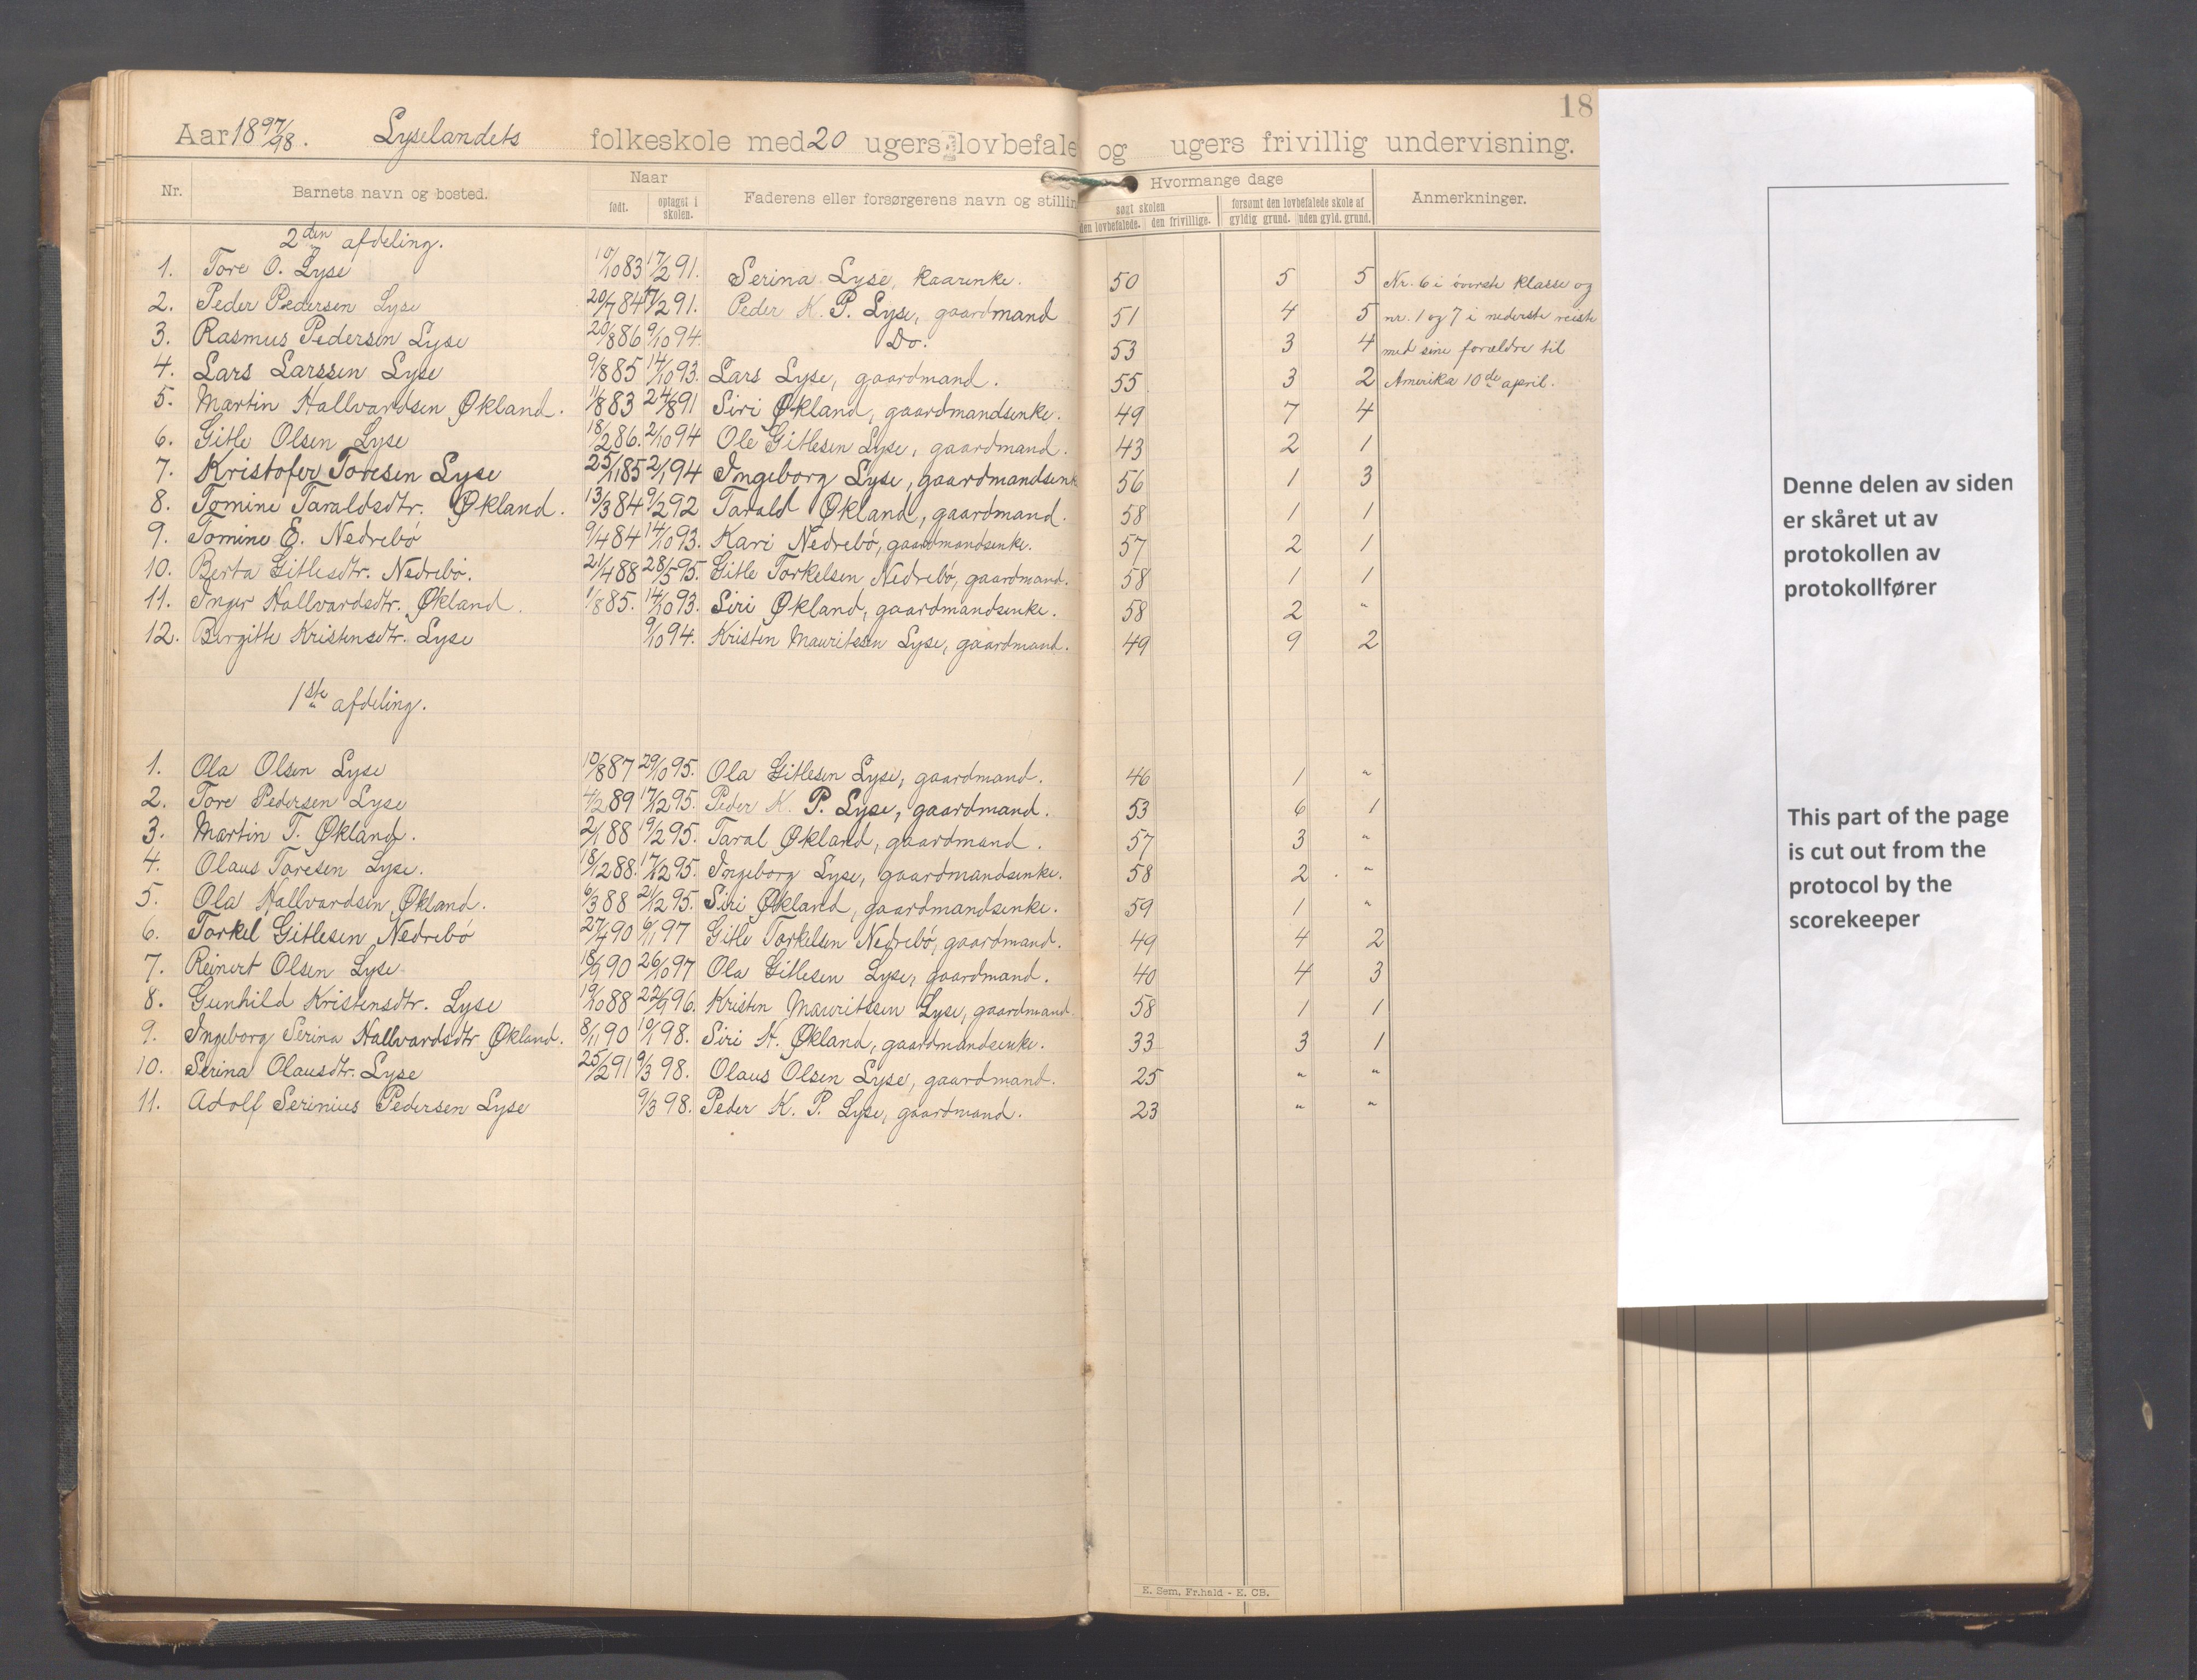 18
Aar 1897/98. Lyselandets folkeskole med 20 ugers lovbefale og ugers frivillig undervisning.
Nr. Barnets navn og bosted. Naar Faderens eller forsørgerens navn og stillin Hvormange dage Anmerkninger.
født. optaget i skolen. søgt skolen forsømt den lovbefalede skole af
den lovbefalede. den frivillige. gyldig grund. uden gyld. grund.
2den afdeling.
1. Tore O. Lyse 10/10 83 17/2 91. Serina Lyse, kaarenke. 50 5 5 Nr. 6 i øverste klasse og
2. Peder Pedersen Lyse 20/7 84 17/2 91. Peder K. P. Lyse, gaardmand 51 4 5 nr. 1 og 7 i nederste reiste
3. Rasmus Pedersen Lyse 20/8 86 9/10 94. Do. 53 3 4 med sine forældre til
4. Lars Larssen Lyse 9/8 85 14/10 93. Lars Lyse, gaardmand. 55 3 2 Amerika 10de april.
5. Martin Hallvardsen Økland. 11/8 83 24/8 91 Siri Økland, gaardmandsenke. 49 7 4
6. Gitle Olsen Lyse 18/2 86. 2/10 94 Ole Gitlesen Lyse, gaardmand. 43 2 1
7. Kristofer Toresen Lyse 25/11 85 2/1 94 Ingeborg Lyse, gaardmandsenk 56 1 3
8. Tomine Taraldsdtr. Økland. 13/3 84 9/2 92 Tarald Økland, gaardmand. 58 1 1
9. Tomine E. Nedrebø 9/4 84 14/10 93. Kari Nedrebø, gaardmandsenke. 57 2 1
10. Berta Gitlesdtr. Nedrebø. 21/4 88 28/5 95. Gitle Torkelsen Nedrebø, gaardmand. 58 1 1
11. Inger Hallvardsdtr. Økland. 1/8 85. 14/10 93. Siri Økland, gaardmandsenke. 58 2 "
12. Birgitte Kristensdtr. Lyse 9/10 94. Kristen Mauritssen Lyse, gaardmand. 49 9 2
1ste afdeling.
1. Ola Olsen Lyse 10/8 87 29/10 95. Ola Gitlesen Lyse, gaardmand. 46 1 "
2. Tore Pedersen Lyse 4/2 89 17/12 95. Peder K. P. Lyse, gaardmand. 53 6 1
3. Martin T. Økland. 2/1 88 19/2 95. Taral Økland, gaardmand. 57 3 "
4. Olaus Toresen Lyse. 18/2 88. 17/12 95. Ingeborg Lyse, gaardmandsenke. 58 2 "
5. Ola Hallvardsen Økland. 6/3 88 21/12 95. Siri Økland, gaardmandsenke. 59 1 "
6. Torkel Gitlesen Nedrebø 27/4 90 6/1 97 Gitle Torkelsen Nedrebø, gaardmand. 49 4 2
7. Reinert Olsen Lyse 18/9 90 26/10 97 Ola Gitlesen Lyse, gaardmand. 40 4 3
8. Gunhild Kristensdtr. Lyse 19/10 88 22/9 96. Kristen Mauritssen Lyse, gaardmand. 58 1 1
9. Ingeborg Serina Hallvardsdtr Økland. 8/11 90 19/1 98. Siri H. Økland, gaardmandsenke. 33 3 1
10. Serina Olausdtr. Lyse 25/2 91 9/3 98. Olaus Olsen Lyse, gaardmand. 25 " "
11. Adolf Serinius Pedersen Lyse 9/3 98. Peder K. P. Lyse, gaardmand. 23 " "
E. Sem, Fr.hald - E. CB.
Denne delen av siden
er skåret ut av
protokollen av
protokollfører
This part of the page
is cut out from the
protocol by the
scorekeeper